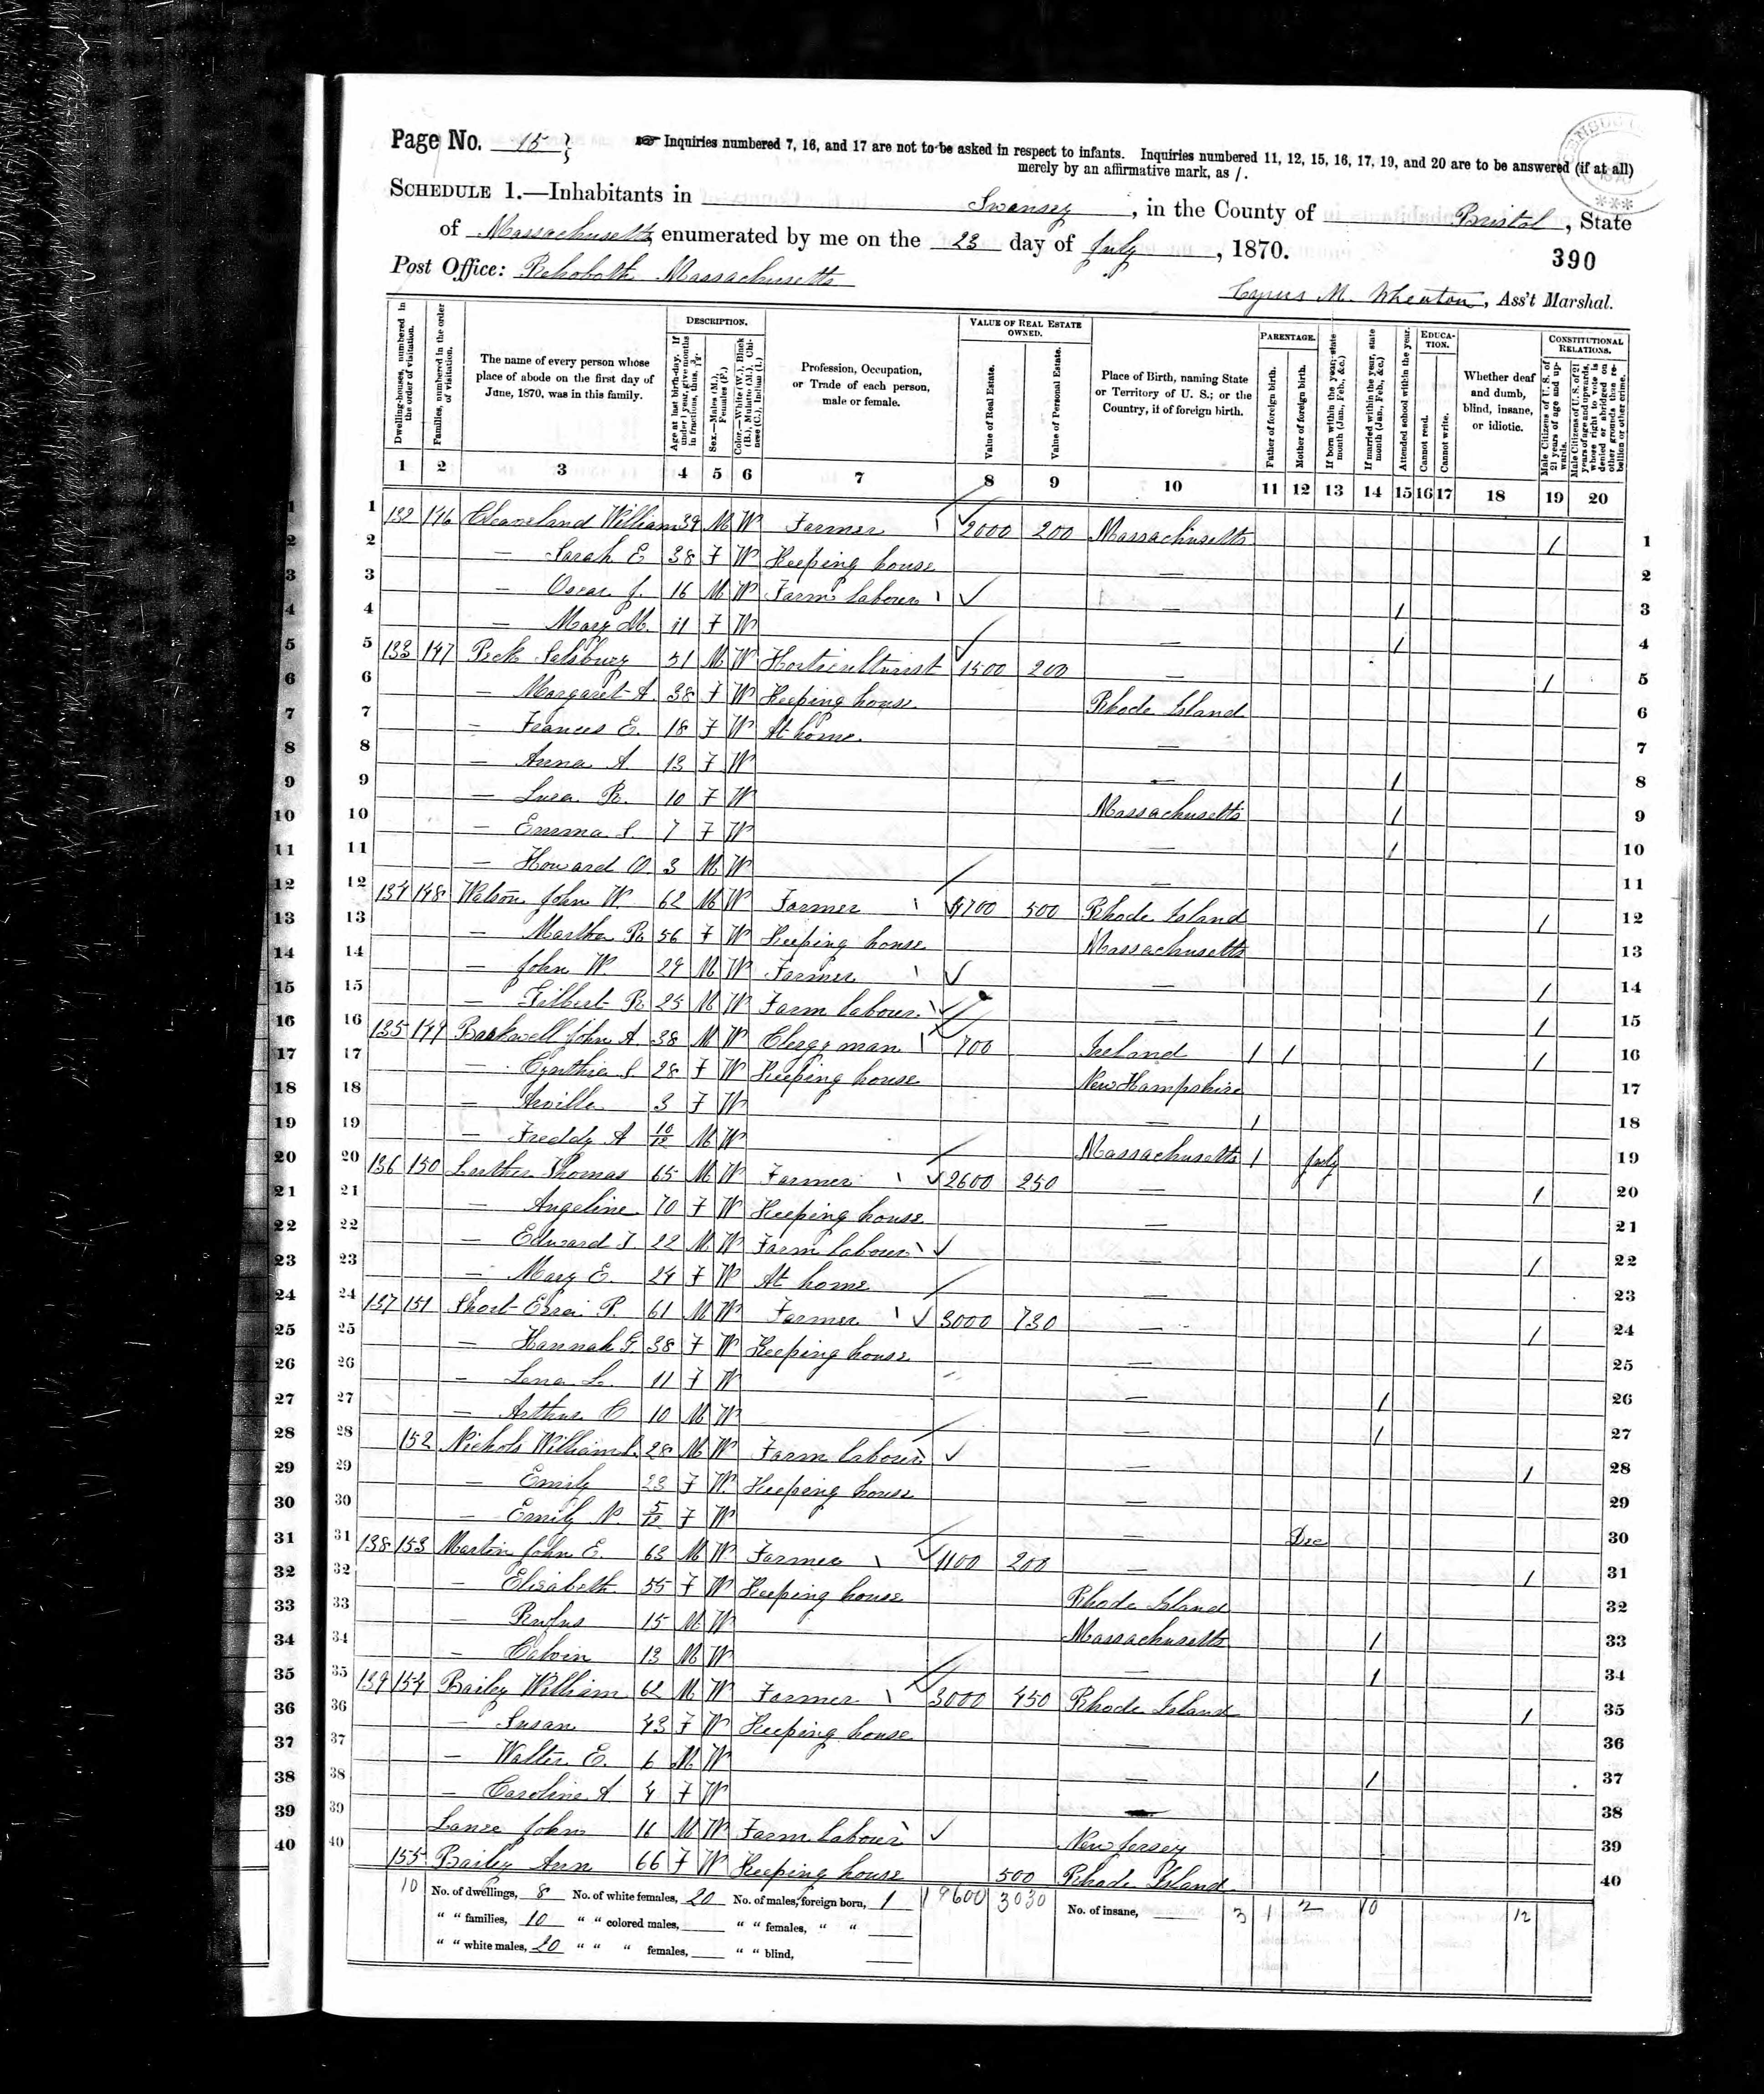 Page No. 15
☞ Inquiries numbered 7, 16, and 17 are not to be asked in respect to infants. Inquiries numbered 11, 12, 15, 16, 17, 19, and 20 are to be answered (if at all)
merely by an affirmative mark, as /.
SCHEDULE 1.—Inhabitants in Swansey, in the County of Bristol, State
of Massachusetts, enumerated by me on the 23 day of July, 1870.
390
Post Office: Rehoboth Massachusetts
Cyrus M. Wheaton, Ass't Marshal.
Dwelling-houses, numbered in the order of visitation.
Families, numbered in the order of visitation.
The name of every person whose place of abode on the first day of June, 1870, was in this family.
DESCRIPTION.
Age at last birth-day. If under 1 year, give months in fractions, thus, 3/12.
Sex.—Males (M.), Females (F.)
Color.—White (W.), Black (B.), Mulatto (M.), Chinese (C.), Indian (I.)
Profession, Occupation, or Trade of each person, male or female.
VALUE OF REAL ESTATE OWNED.
Value of Real Estate.
Value of Personal Estate.
Place of Birth, naming State or Territory of U. S.; or the Country, if of foreign birth.
PARENTAGE.
Father of foreign birth.
Mother of foreign birth.
If born within the year, state month (Jan., Feb., &c.)
If married within the year, state month (Jan., Feb., &c.)
Attended school within the year.
EDUCATION.
Cannot read.
Cannot write.
Whether deaf and dumb, blind, insane, or idiotic.
CONSTITUTIONAL RELATIONS.
Male Citizens of U. S. of 21 years of age and upwards.
Male Citizens of U. S. of 21 years of age and upwards, whose right to vote is denied or abridged on other grounds than rebellion or other crime.
1 2 3 4 5 6 7 8 9 10 11 12 13 14 15 16 17 18 19 20
1 132 146 Cleaveland William 39 M W Farmer 2000 200 Massachusetts / 1
2 — Sarah E 38 F W Keeping house — 2
3 — Oscar J. 16 M W Farm labour — / 3
4 — Mary M. 11 F W — / 4
5 133 147 Peck Salsbury 51 M W Horticulturist 1500 200 — / 5
6 — Margaret A. 38 F W Keeping house Rhode Island 6
7 — Frances E. 18 F W At home — 7
8 — Anna A 13 F W — / 8
9 — R. 10 F W Massachusetts / 9
10 — Emma S. 7 F W — / 10
11 — Howard O. 3 M W — 11
12 134 148 Watson John W. 62 M W Farmer 4700 500 Rhode Island / 12
13 — Martha R 56 F W Keeping house Massachusetts 13
14 — John W. 29 M W Farmer — / 14
15 — Gilbert R 25 M W Farm labour — / 15
16 135 149 John A 38 M W Clergyman 700 Ireland / / / 16
17 — Cynthia S 28 F W Keeping house New Hampshire 17
18 — Arvilla 3 F W — / 18
19 — Freddy A 10/12 M W Massachusetts / July 19
20 136 150 Luther Thomas 65 M W Farmer 2600 250 — / 20
21 — Angeline 70 F W Keeping house — 21
22 — Edward T. 22 M W Farm labour — / 22
23 — Mary E. 24 F W At home — 23
24 137 151 Short Ezra P. 61 M W Farmer 3000 730 — / 24
25 — Hannah F. 38 F W Keeping house — 25
26 — Lena L. 11 F W — / 26
27 — Arthur C 10 M W — / 27
28 152 Nichols William 28 M W Farm labour — / 28
29 — Emily 23 F W Keeping house — 29
30 — Emily N. 5/12 F W — Dec 30
31 138 153 Martin John E. 63 M W Farmer 1100 200 — / 31
32 — Elizabeth 55 F W Keeping house Rhode Island 32
33 — Rufus 15 M W Massachusetts / 33
34 — Calvin 13 M W — / 34
35 139 154 Bailey William 62 M W Farmer 3000 450 Rhode Island / 35
36 — Susan 43 F W Keeping house — 36
37 — Walter E. 6 M W — / 37
38 — Caroline A 4 F W — 38
39 John 16 M W Farm labour New Jersey 39
40 155 Bailey Ann 66 F W Keeping house 500 Rhode Island 40
10 No. of dwellings, 8 No. of white females, 20 No. of males, foreign born, 1 18600 3030 No. of insane, 3 1 2 10 12
" " families, 10 " " colored males, " " females, " "
" " white males, 20 " " " females, " " blind,